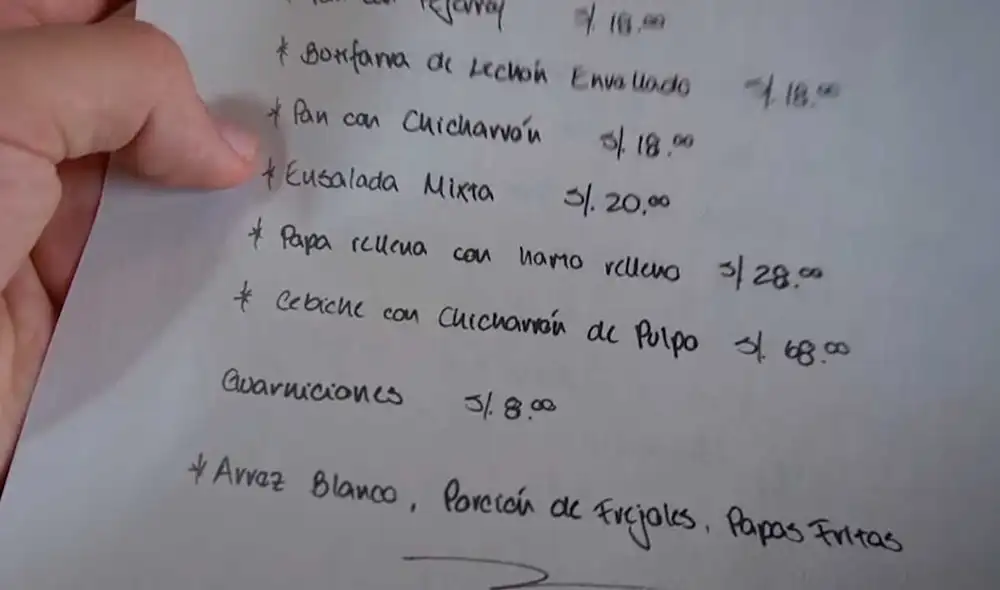 Pan con Pejerrey S/. 18.00
* Butifarra de Lechón Envallado S/. 18.00
* Pan con Chicharrón S/. 18.00
* Ensalada Mixta S/. 20.00
* Papa rellena con harto relleno S/ 28.00
* Cebiche con Chicharrón de Pulpo S/. 68.00
Guarniciones S/. 8.00
* Arroz Blanco, Porción de Frejoles, Papas Fritas